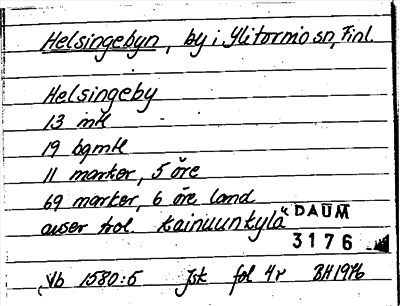 Helsingebyn, by i Ylitornio sn, Finl.
Helsingeby
13 mtl
19 bgmtl
11 marker, 5 öre
69 marker, 6 öre land
avser trol. Kainuunkylä"
DAUM
3176
Vb 1580:5 Jsk fol 4r BH 1976